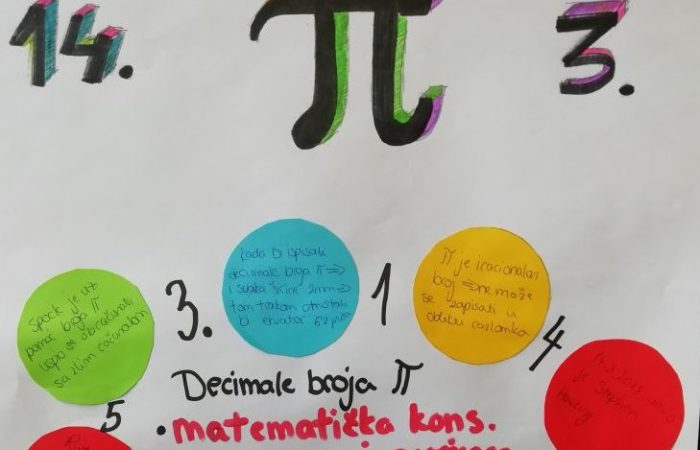 14. π 3.
Spock je uz
pomoć broja π
uspio se obračunati
sa zlim računalom
3.
kada bi ispisali
decimale broja π =>
i svaka širine 2mm =>
tom trakom omotali
bi ekvator 62 puta
1
π je iracionalan
broj => ne može
se zapisati u
obliku razlomka
4
14.3.2018. umro
je Stephen
Hawking
5
Decimale broja π
• matematička kons.